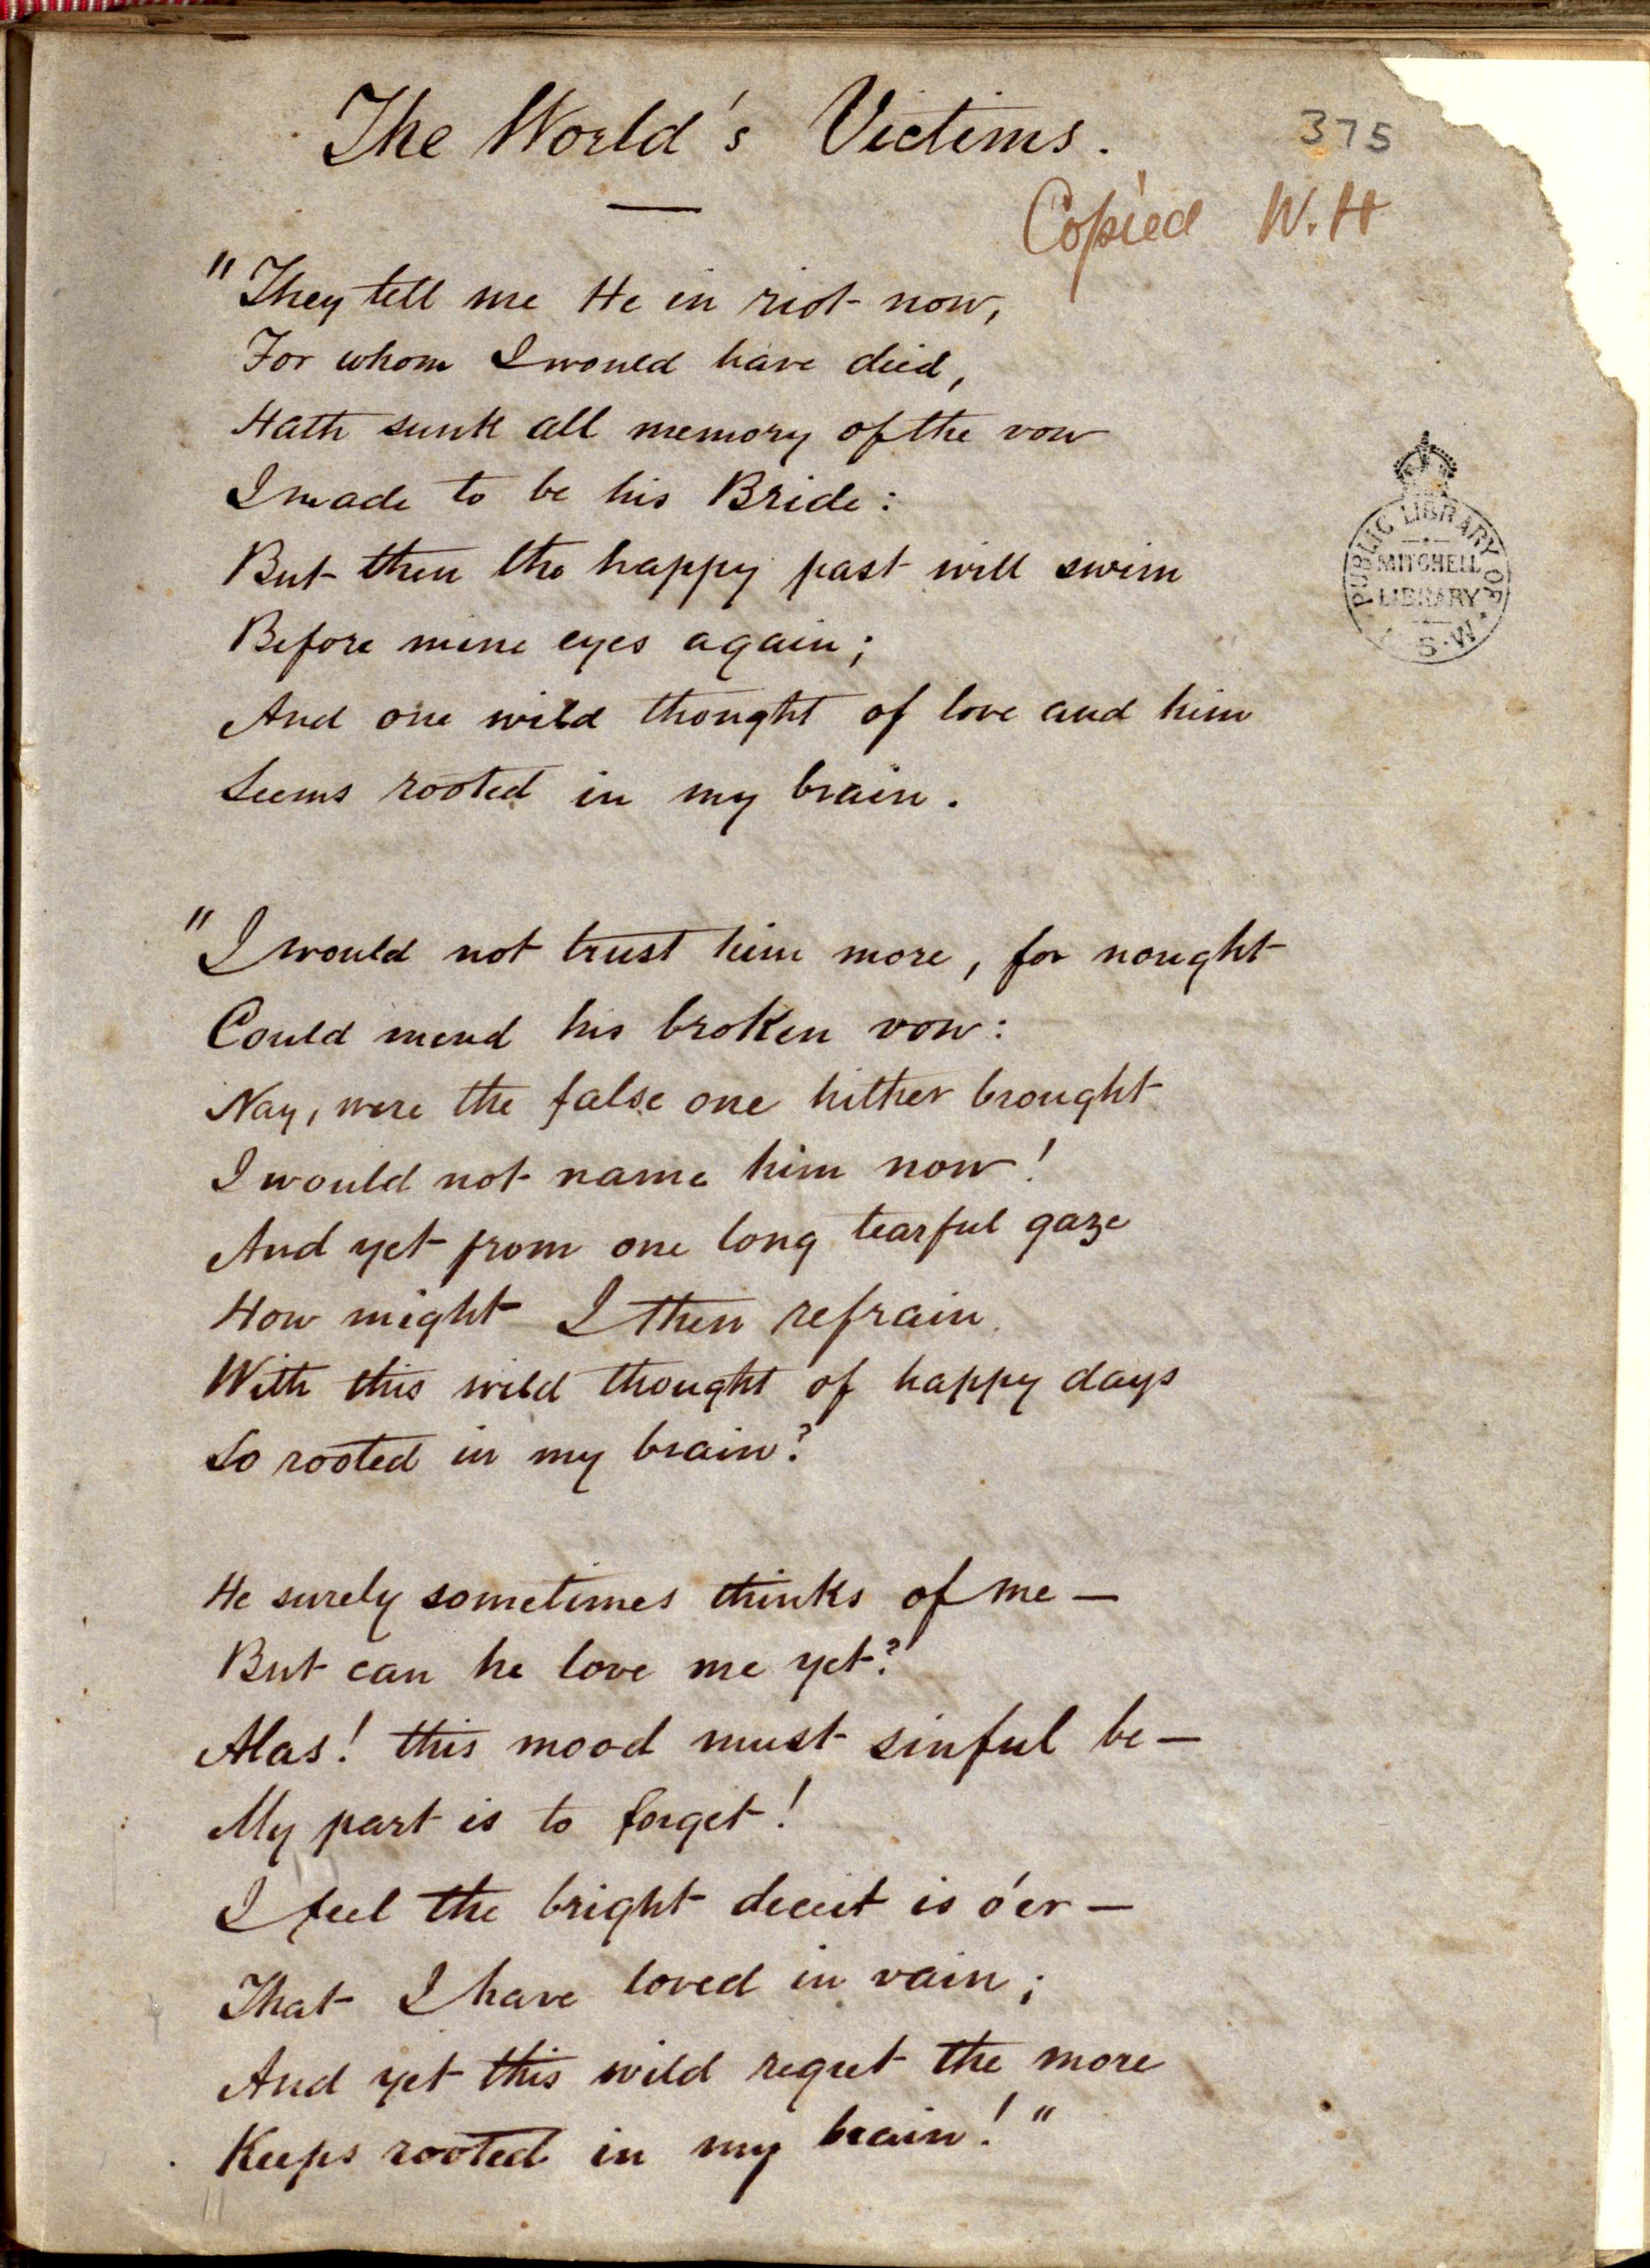 The World's Victims.
375
Copied W.H
"They tell me He in riot now,
For whom I would have died,
Hath sunk all memory of the vow
I made to be his Bride:
But then the happy past will swim
Before mine eyes again;
And one wild thought of love and him
Seems rooted in my brain.
PUBLIC LIBRARY OF
MITCHELL
LIBRARY
S.W.
"I would not trust him more, for nought
Could mend his broken vow:
Nay, were the false one hither brought
I would not name him now!
And yet from one long tearful gaze
How might I then refrain
With this wild thought of happy days
So rooted in my brain?
He surely sometimes thinks of me —
But can he love me yet?
Alas! this mood must sinful be —
My part is to forget!
I feel the bright deceit is o'er —
That I have loved in vain;
And yet this wild regret the more
Keeps rooted in my brain!"